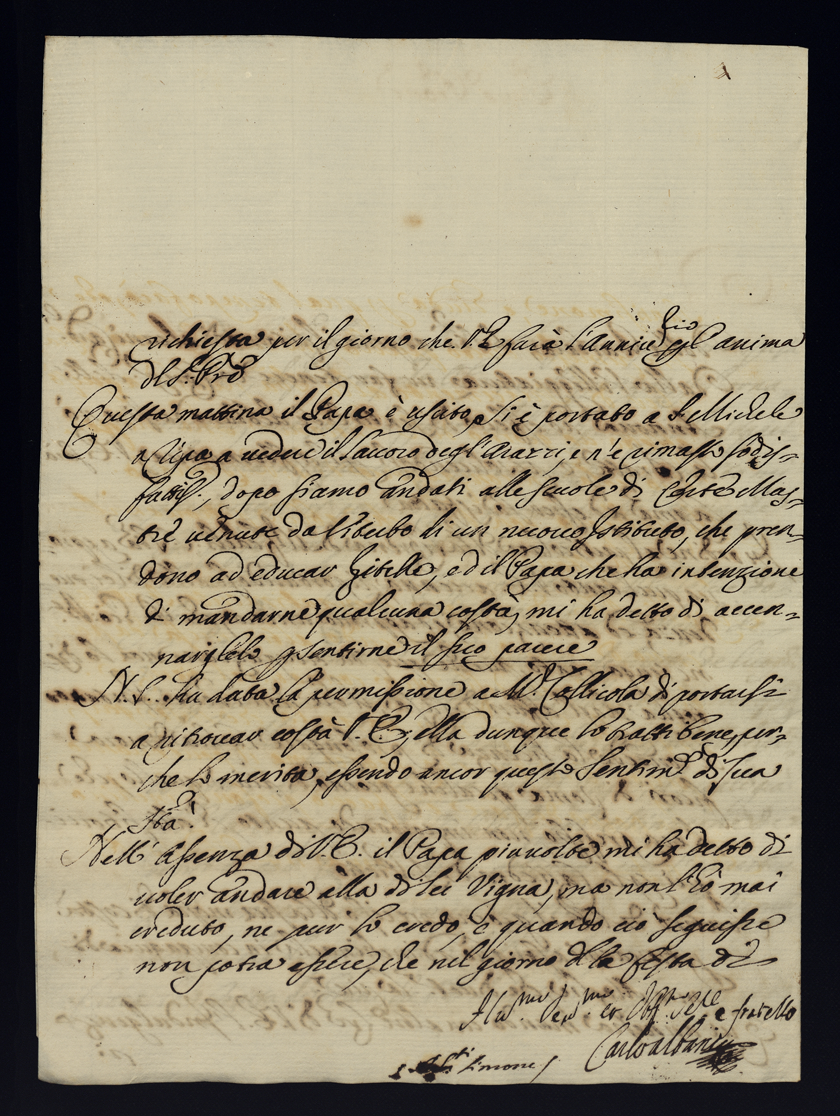 richiesta per il giorno che V.E. farà l'Anniv.rio p. l'anima
del S.r Pre
Questa mattina il Papa è uscito, si è portato a S. Michele
a Ripa a vedere il lavoro degl'Arazzi, e n'è rimasto sodis-
fattis.o, dopo siamo andati alle scuole di certe Mas-
tre venute da Viterbo di un nuovo Istituto, che pren-
dono ad educar Zitelle, ed il Papa che ha intenzione
di mandarne qualcuna costà, mi ha detto di accen-
narglelo p sentirne il suo parere
N. S. ha data la permissione a M.r Collicola di portarsi
a ritrovar costà V.E., ella dunque lo tratti bene, per-
che lo merita, essendo ancor questo Sentim.to di Sua
Stà.
Nell'assenza di V.E. il Papa più volte mi ha detto di
voler andare alla di lei Vigna, ma non l'hò mai
creduto, ne pur lo credo, e quando ciò seguisse
non potrà essere, che nel giorno della festa di
Ill.mo Sig.mo er Aff.mo Se.re e fratello
Carlo Albani
S.ti Simone